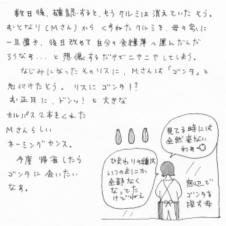 数日後、確認すると、もうクルミは消えていたそう。
おとなり(Mさん)から くすねたクルミを、母の
一旦置き、後日改めて自分の金
ろうなぁ…と想像するだけでニヤニヤしてしまう。
なじみになったそのリスに、Mさんは「ゴンタ」と
名付けたそう。リスにゴンタ！？
お正月に、ドンッ！と大きな
カルパス2本をくれた
Mさんらしい
ネーミングセンス。
今度 帰省したら
ゴンタに会いたい
なぁ。
見てる時には
全然来ない
わぁ
ひまわりの種は
いつのまにか
全部なく
なってた
けど
窓辺で
ゴンタを
探す母